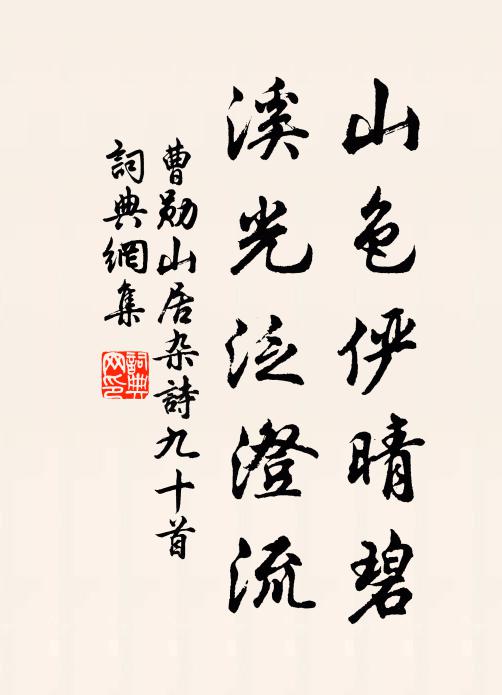 山色俨晴碧
溪光泛澄流
曹勛山居杂詩九十首
詞典網集
詞典网印